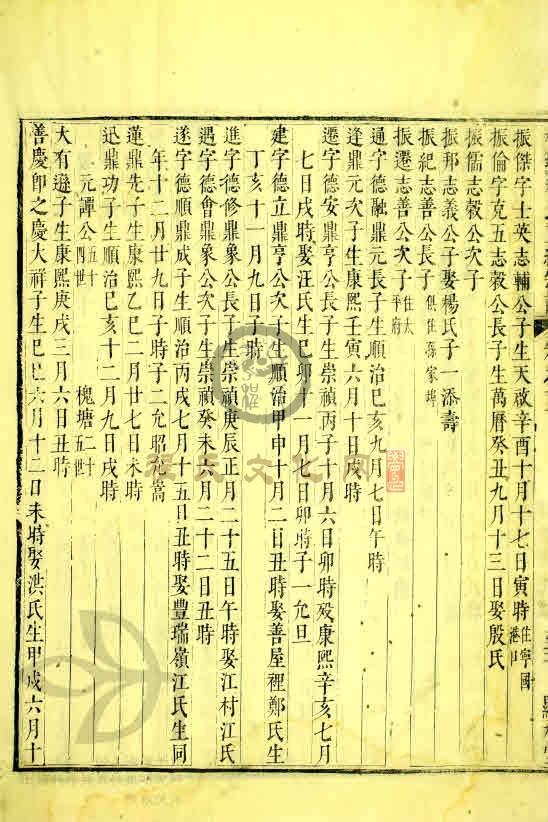 振傑字士英志輔公子生天啟辛酉十月十七日寅時住寧國港口
振倫字克五志穀公長子生萬曆癸丑九月十三日娶殷氏
振儒志穀公次子
振邦志義公子娶楊氏子一添壽
振紀志善公長子俱住孫家埠
振遷志善公次子住太平府
通字德融鼎元長子生順治己亥九月七日午時
逢鼎元次子生康熙壬寅六月十日戌時
遷字德安鼎亨公長子生崇禎丙子十月六日卯時殁康熙辛亥七月
七日戌時娶汪氏生己卯十一月七日卯時子一允旦
建字德立鼎亨公次子生順治甲申十月二日丑時娶善屋裡鄭氏生
丁亥十一月九日子時
進字德修鼎象公長子生崇禎庚辰正月二十五日午時娶江村江氏
遇字德會鼎象公次子生崇禎癸未六月二十二日丑時
遂字德順鼎成子生順治丙戌七月十五日丑時娶豐瑞嶺江氏生同
年十二月廿九日子時子二允昭允嵩
蓮鼎先子生康熙乙巳二月廿七日未時
迅鼎功子生順治己亥十二月九日戌時
元譚公五十四世 槐塘二十五世
大有遜子生康熙庚戌三月六日丑時
善慶卽之慶大祥子生己巳六月十二日未時娶洪氏生甲戌六月十
程氏文化网